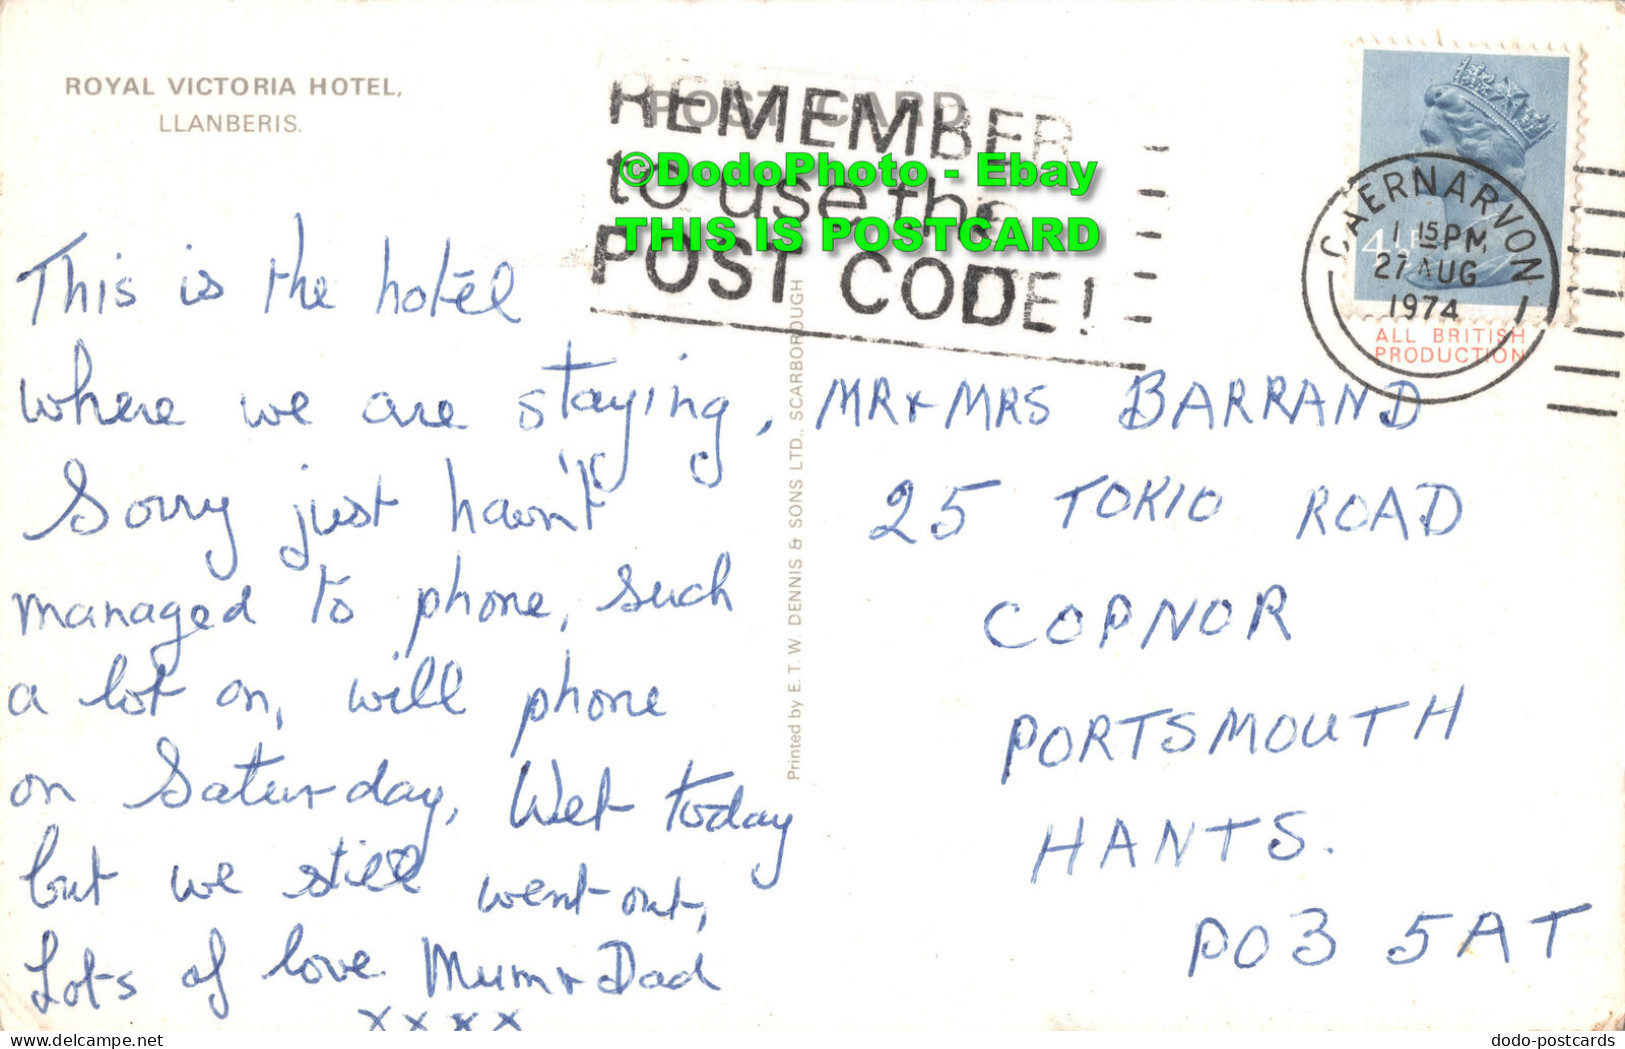 ROYAL VICTORIA HOTEL,
LLANBERIS.
POST CARD
REMEMBER
to use the
POST CODE!
©DodoPhoto - Ebay
THIS IS POSTCARD
4½P
CAERNARVON
1 15 PM
27 AUG
1974
ALL BRITISH
PRODUCTION
This is the hotel
where we are staying,
Sorry just havn't
managed to phone, such
a lot on, will phone
on Saturday, Wet today
but we still went out,
Lots of love Mum & Dad
x x x x
Printed by E. T. W. DENNIS & SONS LTD., SCARBOROUGH
MR & MRS BARRAND
25 TOKIO ROAD
COPNOR
PORTSMOUTH
HANTS.
PO3 5AT
hippostcard.com
dodo-postcards